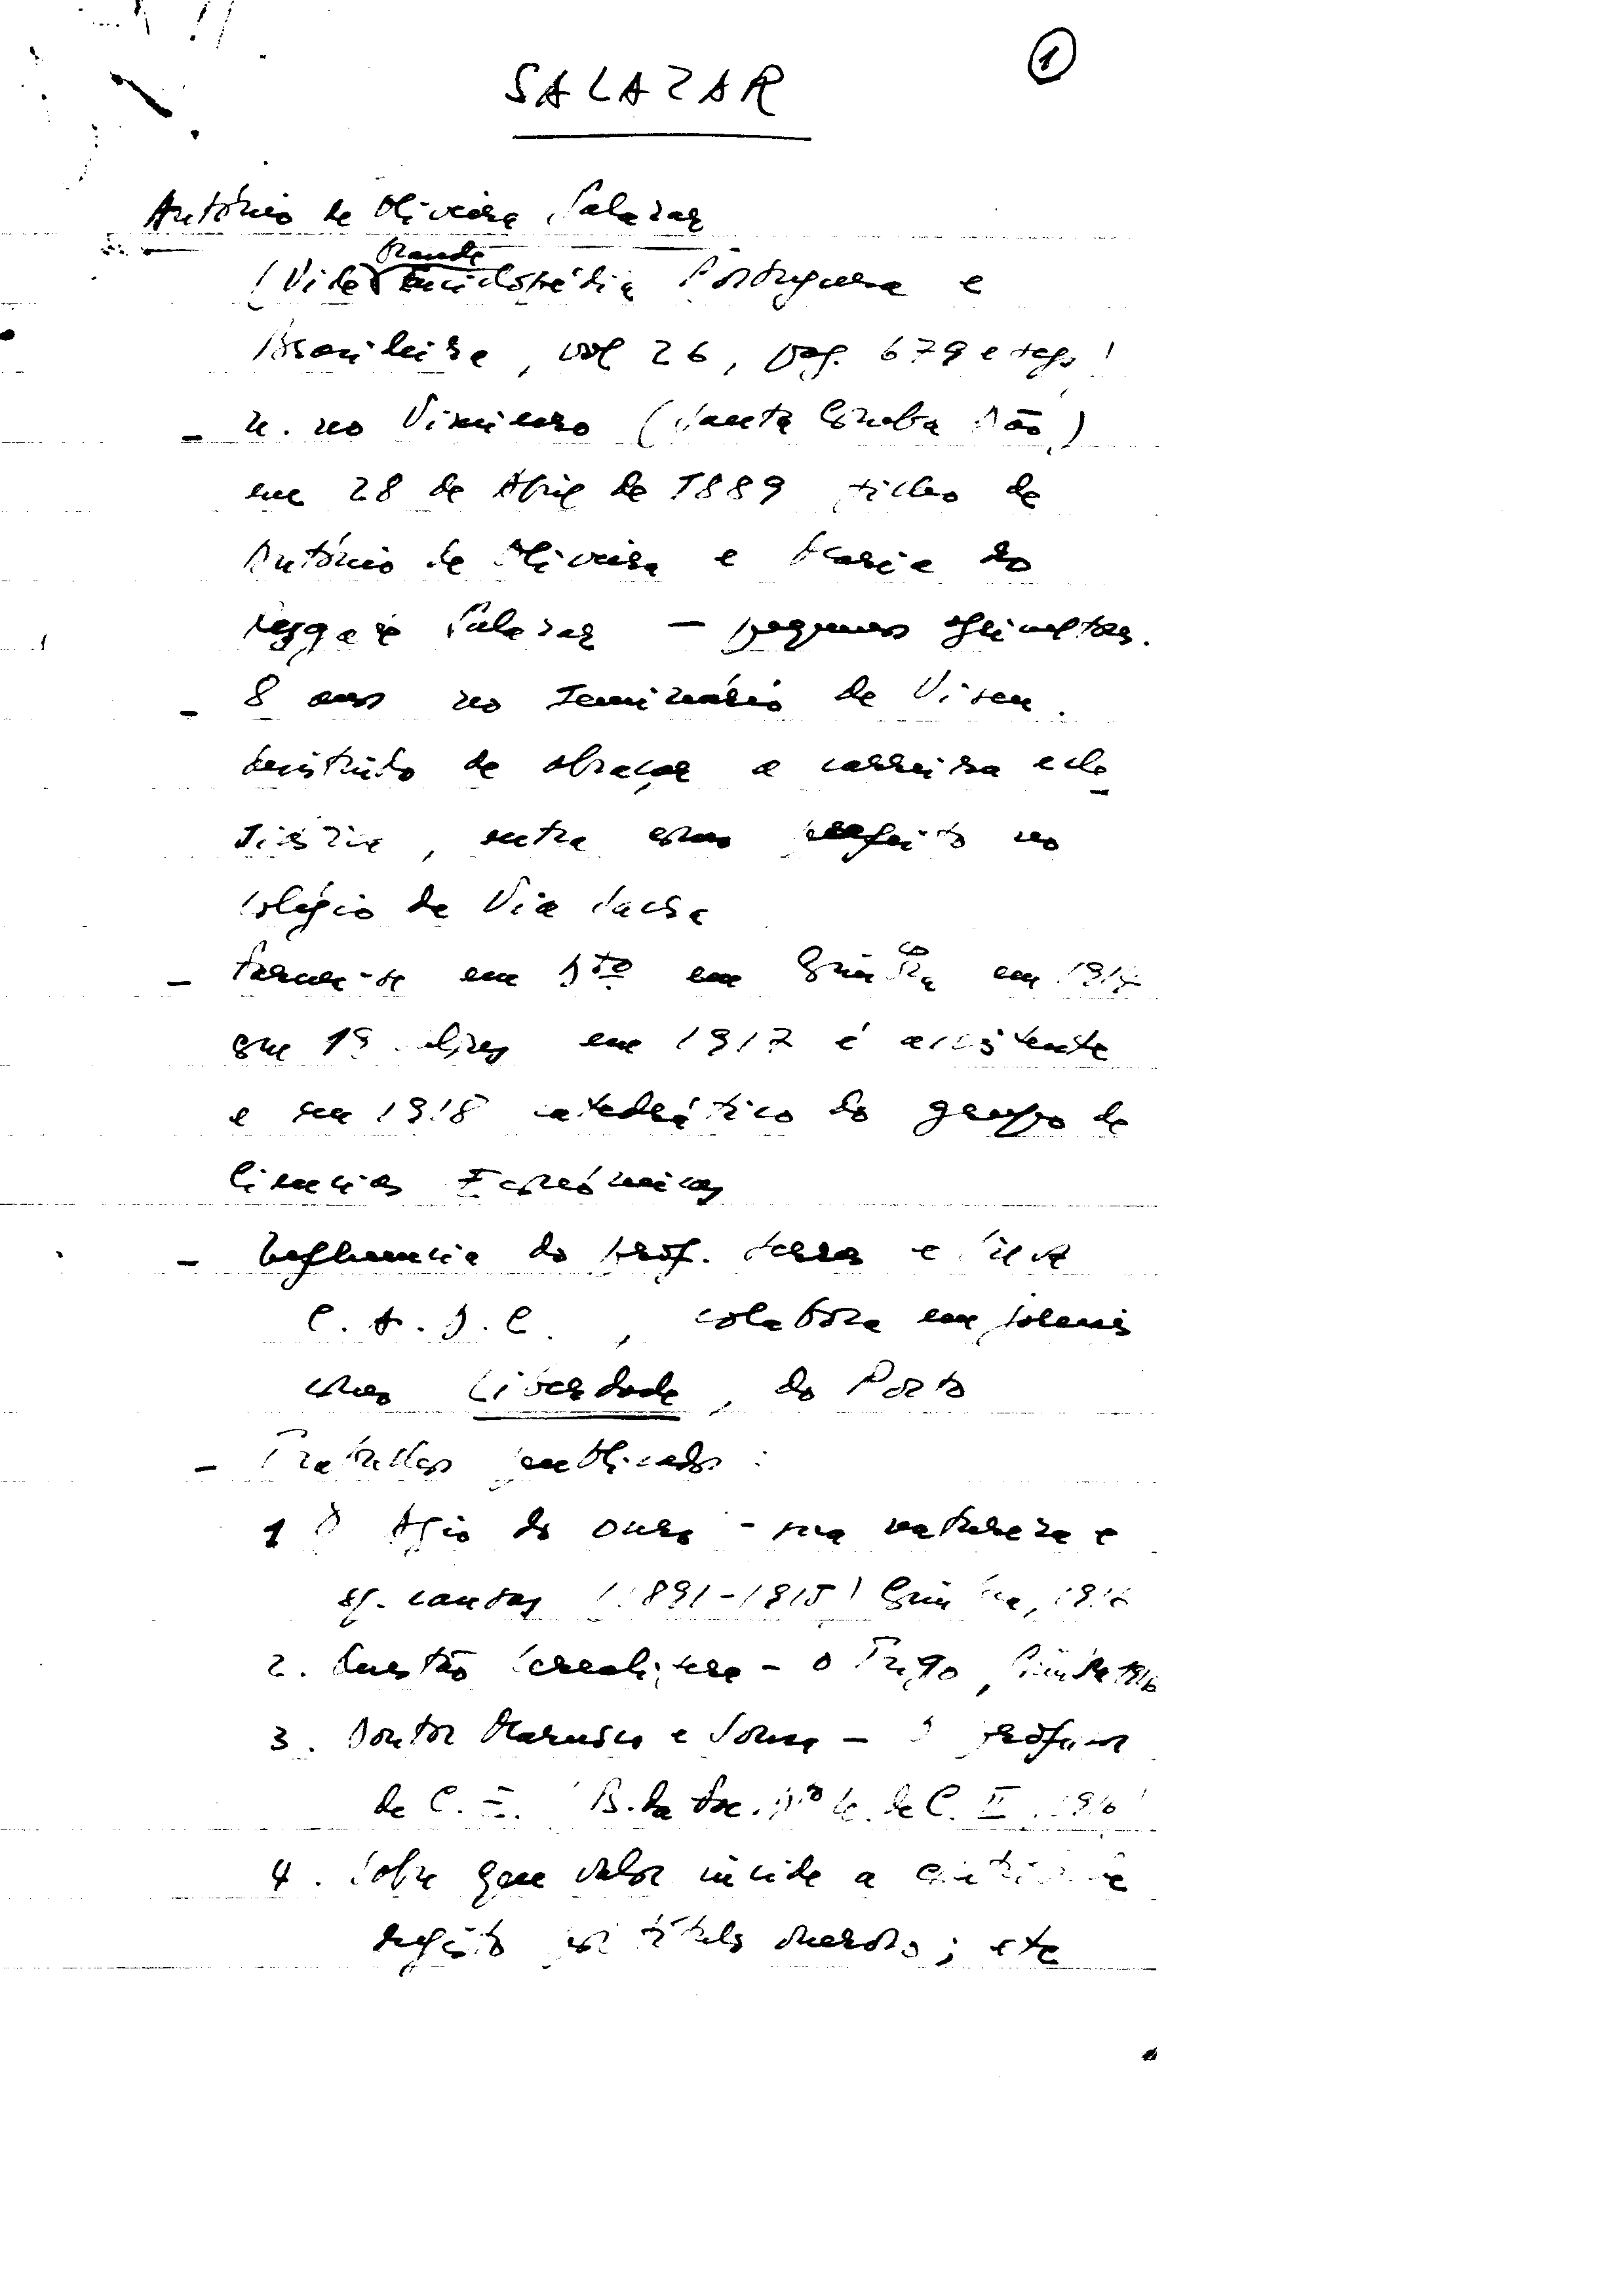 SALAZAR
1
António de Oliveira Salazar
(Vide Grande Enciclopédia Portuguesa e
Brasileira, vol 26, pag. 679 e segs)
- n. no Vimieiro (Santa Comba Dão)
em 28 de Abril de 1889 filho de
António de Oliveira e Maria do
Resgate Salazar — pequenos agricultores.
- 8 anos no Seminário de Viseu.
desistindo de abraçar a carreira ecle
siástica, entra como prefeito no
Colégio da Via Sacra
- Forma-se em Dto em Coimbra em 1914
com 19 valores em 1917 é assistente
e em 1918 catedrático do grupo de
Ciencias Económicas
- Influencia do prof. e
C.A.D.C., colabora em jornais
como Liberdade, do Porto
- Trabalhos publicados:
1 O Agio do Ouro - sua natureza e
sf. causas (1891-1915) Coimbra, 1916
2. Questão Cerealífera - o Trigo, Coimbra 1916
3. Doutor Marnoco e Sousa - O professor
de C.E. B. da Fac. Dto U. de C. II 1916
4. Sobre que valor incide a
registo por título oneroso; etc